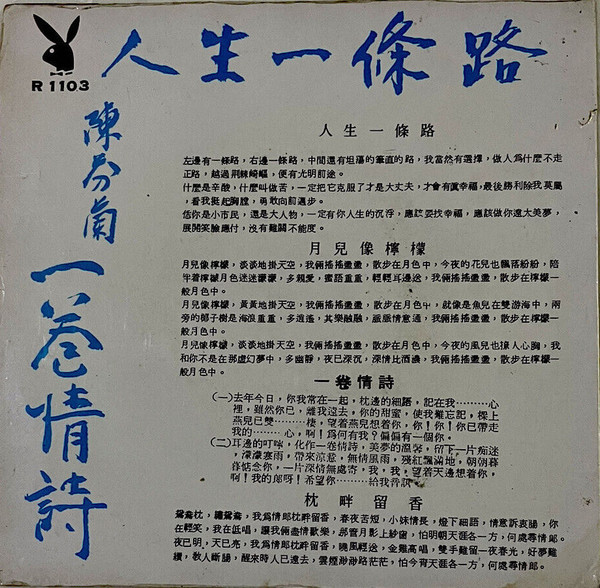 人生一條路
R 1103
陳芬蘭
一卷情詩
人生一條路
左邊有一條路，右邊一條路，中間還有坦蕩的筆直的路，我當然有選擇，做人為什麼不走
正路，越過荆棘崎嶇，便有光明前途。
什麼是辛酸，什麼叫做苦，一定把它克服了才是大丈夫，才會有眞幸福，最後勝利除我莫屬
，看我挺起胸膛，勇敢向前邁步。
恁你是小市民，還是大人物，一定有你人生的沉浮，應該要找幸福，應該做你遠太美夢，
展開笑臉應付，沒有難關不能度。
月兒像檸檬
月兒像檸檬，淡淡地掛天空，我倆搖搖盪盪，散步在月色中，今夜的花兒也飄落紛紛，陪
半着檸檬月色迷迷濛濛，多親愛，蜜語重重，輕輕耳邊送，我倆搖搖盪盪，散步在檸檬一
般月色中。
月兒像檸檬，黃黃地掛天空，我倆搖搖盪盪，散步在月色中，就像是魚兒在雙游海中，兩
旁的椰子樹是海浪重重，多逍遙，其樂融融，脈脈情意通，我倆搖搖盪盪，散步在檸檬一
般月色中。
月兒像檸檬，淡淡地掛天空，我倆搖搖盪盪，散步在月色中，今夜的風兒也撩人心胸，我
和你不是在那虛幻夢中，多幽靜，夜已深沉，深情比酒濃，我倆搖搖盪盪，散步在檸檬一
般月色中。
一卷情詩
（一）去年今日，你我常在一起，枕邊的細語，記在我………心
裡，雖然你已，離我遠去，你的甜蜜，使我難忘記，樑上
燕兒已雙………棲，望着燕兒想着你，你！你！你已帶走
我的………心，啊！為何有我？偏偏有一個你。
（二）耳邊的叮嚀，化作一卷情詩，美夢的溫馨，留下一片痴迷
，濛濛寒雨，帶來涼意，無情風雨，殘紅飄滿地，朝朝暮
暮惦念你，一片深情無處寄，我，我，望着天邊想着你，
啊！我的郎呀！希望你………給我音訊
枕畔留香
鴛鴦枕，繡鴛鴦，我為情郎枕畔留香，春夜苦短，小妹情長，燈下細語，情意訴衷腸，你
在輕笑，我在低唱，讓我倆盡情歡樂，那管月影上紗窗，怕明朝天涯各一方，何處尋情郎。
夜已明，天已亮，我為情郎枕畔留香，曉風輕送，金雞高唱，雙手難留一夜春光，好夢難
續，教人斷腸，醒來時人已遠去，雲煙渺渺路茫茫，怕今宵天涯各一方，何處尋情郎。